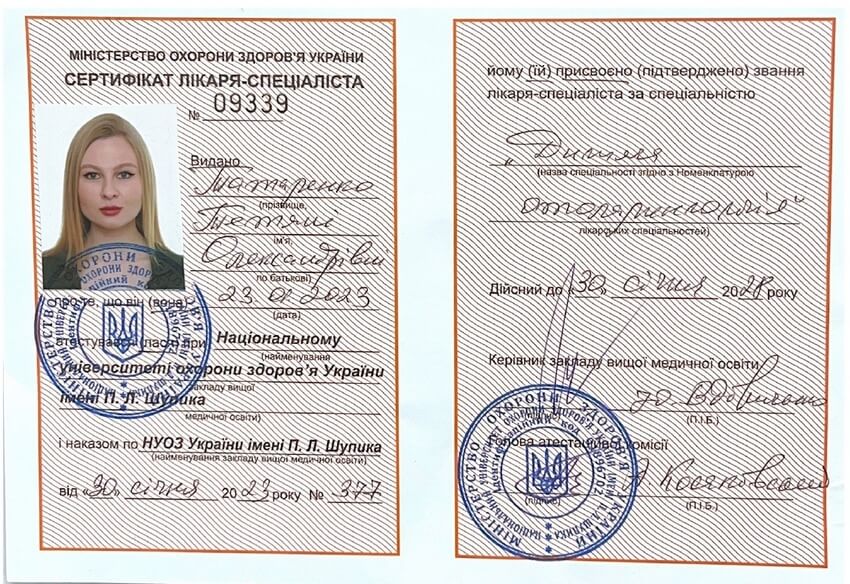 МІНІСТЕРСТВО ОХОРОНИ ЗДОРОВ'Я УКРАЇНИ
СЕРТИФІКАТ ЛІКАРЯ-СПЕЦІАЛІСТА
№ 09339
Видано
Татаренко
(прізвище,
Тетяні
ім'я,
Олександрівні
по батькові)
23.01.2023
(дата)
про те, що він (вона)
атестувався (лась) при Національному
(найменування
університеті охорони здоров'я України
закладу вищої
імені П. Л. Шупика
медичної освіти)
і наказом по НУОЗ України імені П. Л. Шупика
(найменування закладу вищої медичної освіти)
від «30» січня 2023 року № 377
йому (їй) присвоєно (підтверджено) звання
лікаря-спеціаліста за спеціальністю
„Дитяча
(назва спеціальності згідно з Номенклатурою
отоларингологія"
лікарських спеціальностей)
Дійсний до «30» січня 2028 року
Керівник закладу вищої медичної освіти
Ю. Вдовиченко
(П.І.Б.)
Голова атестаційної комісії
А. Косяковський
(підпис)
(П.І.Б.)
МІНІСТЕРСТВО ОХОРОНИ ЗДОРОВ'Я УКРАЇНИ